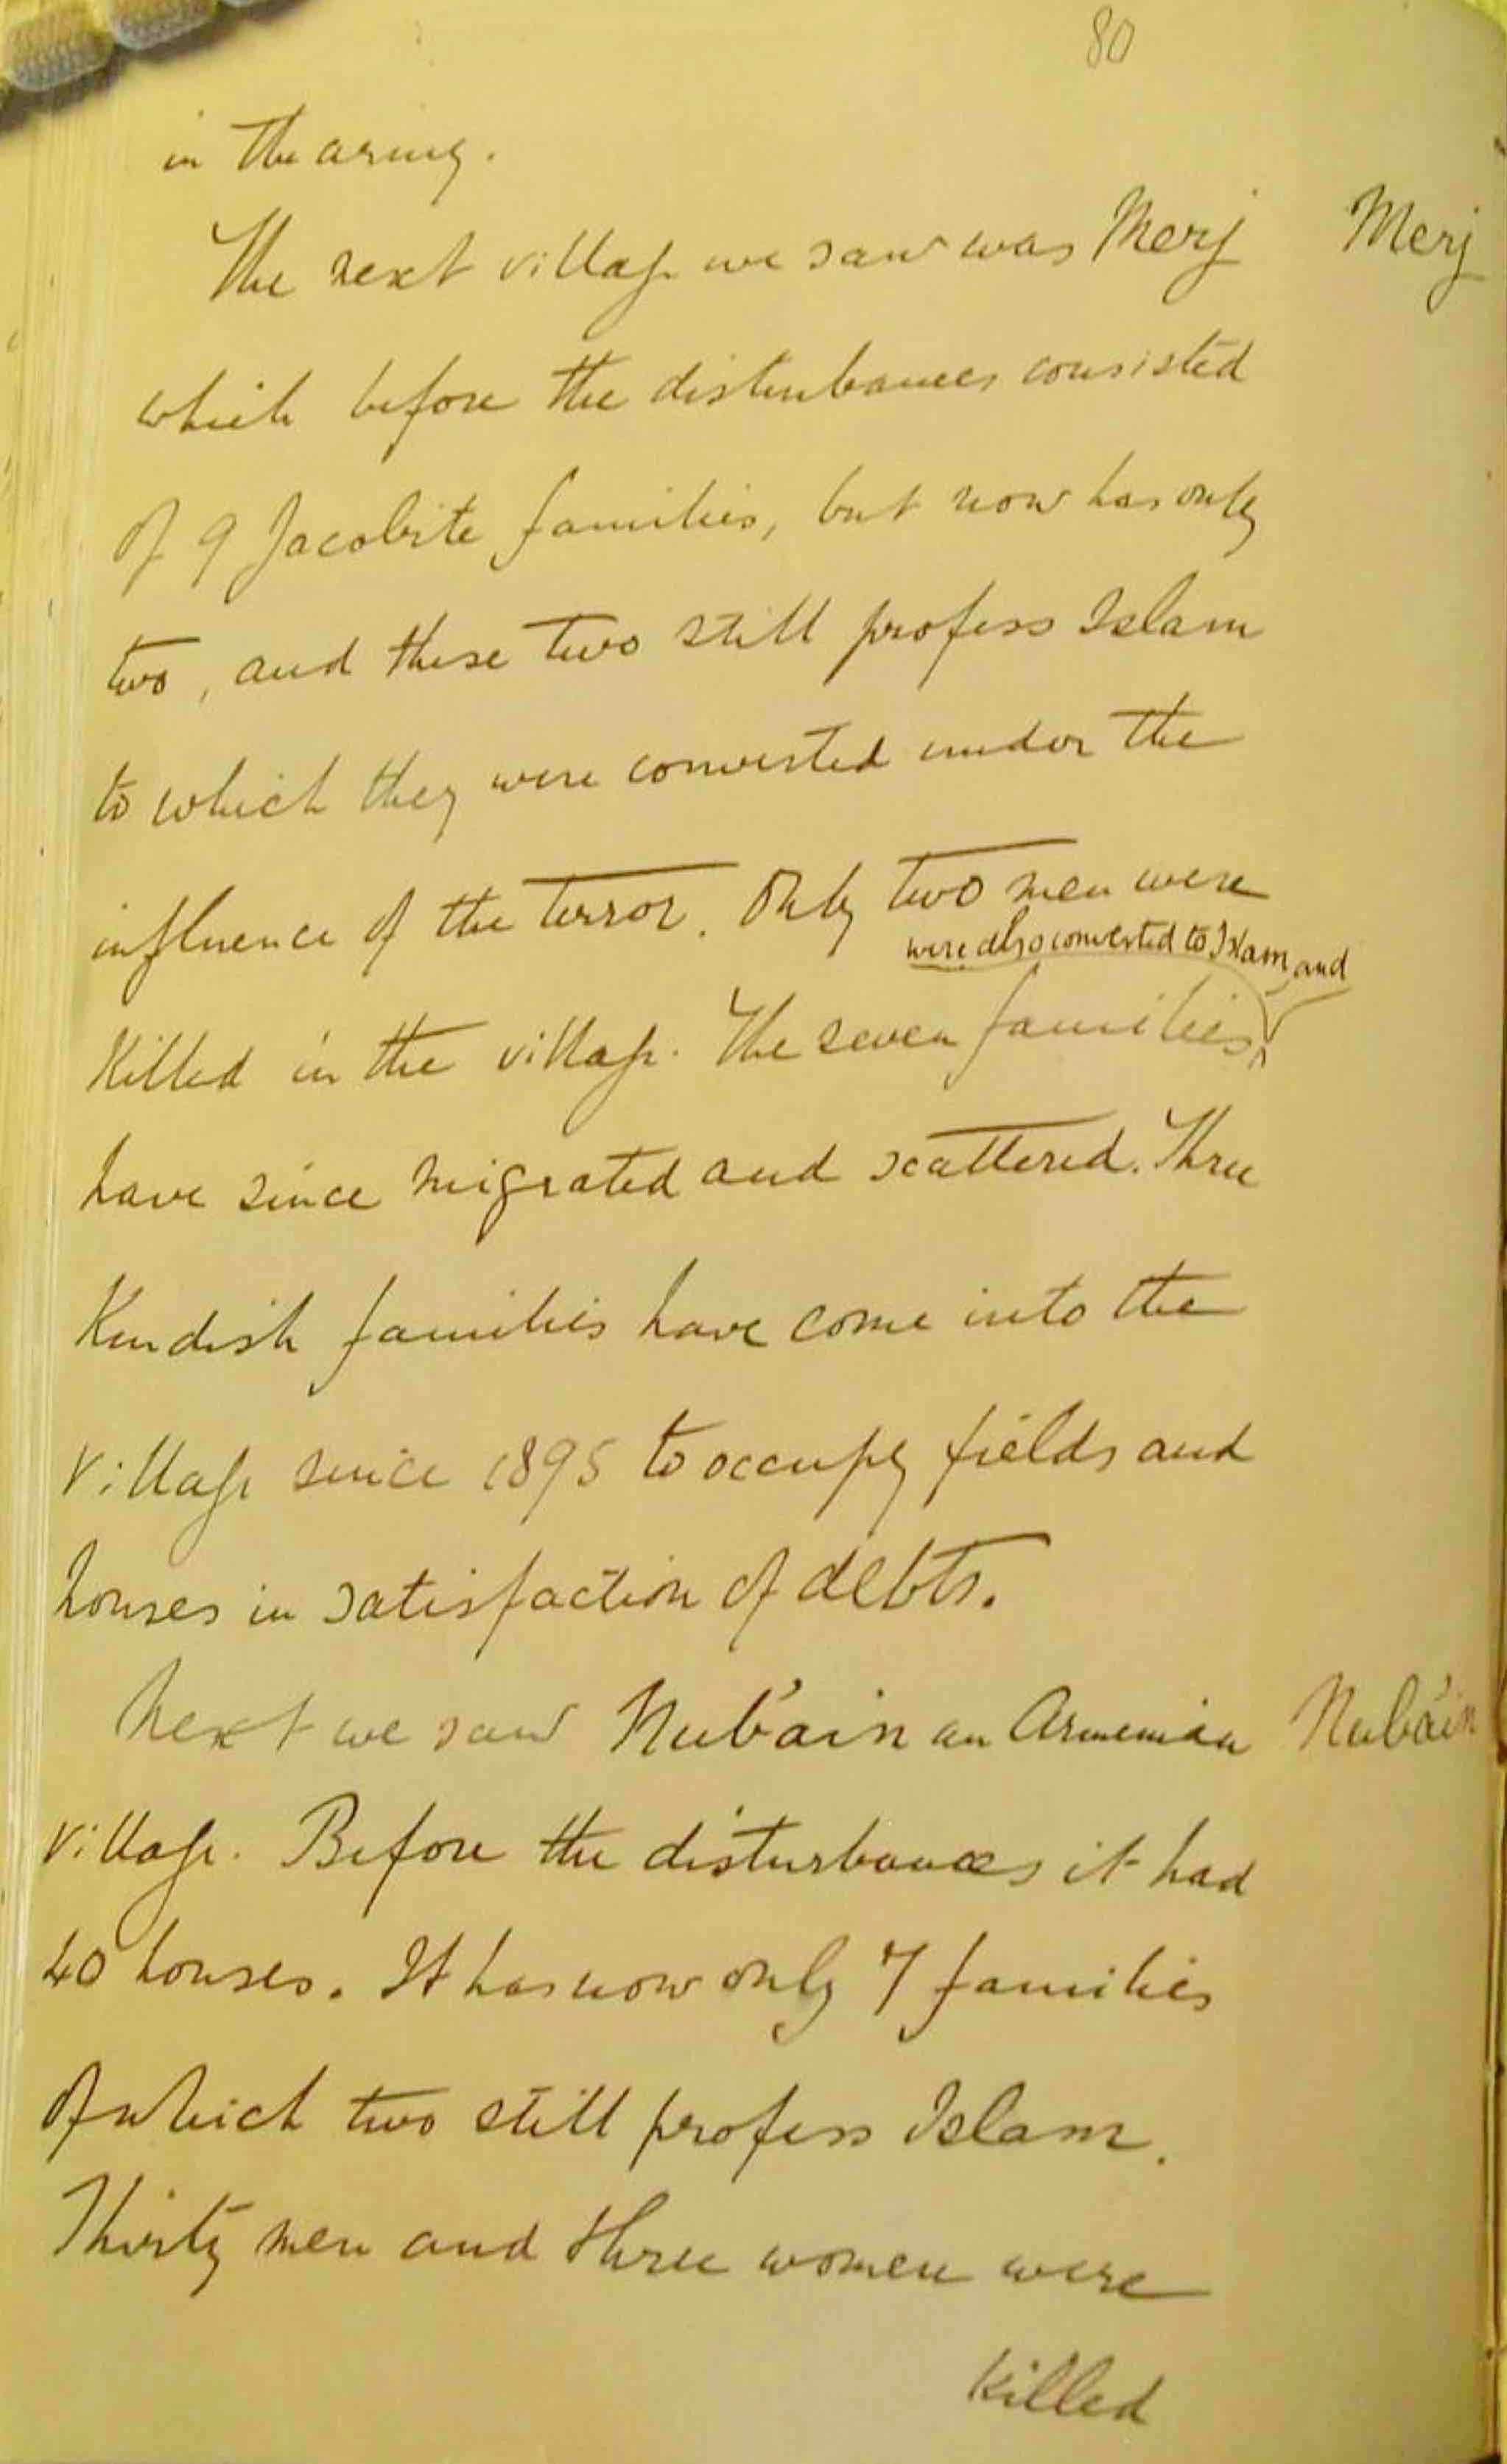 80
in the army.
The next village we saw was Merj
Merj
which before the disturbances consisted
of 9 Jacobite families, but now has only
two, and these two still profess Islam
to which they were converted under the
influence of the terror. Only two men were
were also converted to Islam, and
killed in the village. The seven families,
have since migrated and scattered. Three
Kurdish families have come into the
village since 1895 to occupy fields and
houses in satisfaction of debts.
Next we saw Nub'ain an Armenian
Nub'ain
village. Before the disturbances it had
40 houses. It has now only 7 families
of which two still profess Islam.
Thirty men and three women were
killed